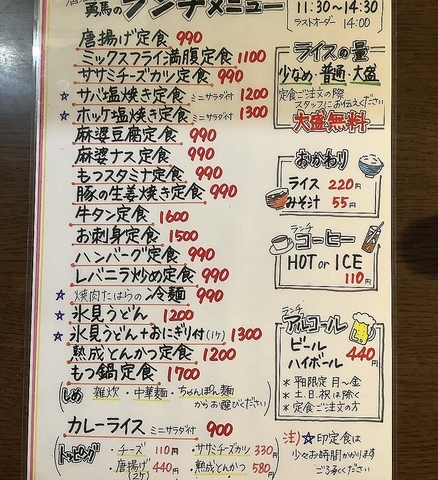 勇馬のランチメニュー
11:30~14:30
ラストオーダー 14:00
唐揚げ定食 990
ミックスフライ満腹定食 1100
ササミチーズカツ定食 990
☆ サバ塩焼き定食 ミニサラダ付 1200
☆ ホッケ塩焼き定食 ミニサラダ付 1300
麻婆豆腐定食 990
麻婆ナス定食 990
もつスタミナ定食 990
豚の生姜焼き定食 990
牛タン定食 1600
お刺身定食 1500
ハンバーグ定食 990
レバニラ炒め定食 990
☆ 焼肉たはらの冷麺 990
☆ 氷見うどん 1200
☆ 氷見うどん+おにぎり付(1ケ) 1300
熟成とんかつ定食 1200
もつ鍋定食 1700
(しめ 雑炊・中華麺・ちゃんぽん麺
からお選びください)
カレーライス ミニサラダ付 900
(トッピング ・チーズ 110円 ・ササミチーズカツ 330円
・唐揚げ(2ケ) 440円 ・熟成とんかつ 580円
ライスの量
少なめ・普通・大盛
定食ご注文の際
スタッフにお伝えください
大盛無料
おかわり
ライス 220円
みそ汁 55円
ランチ
コーヒー
HOT or ICE
110円
ランチ
アルコール
ビール
ハイボール
440円
*平日限定 月~金
*土.日.祝は除く
*定食ご注文の方
注)☆印定食は
少々お時間かかります
ご了承ください